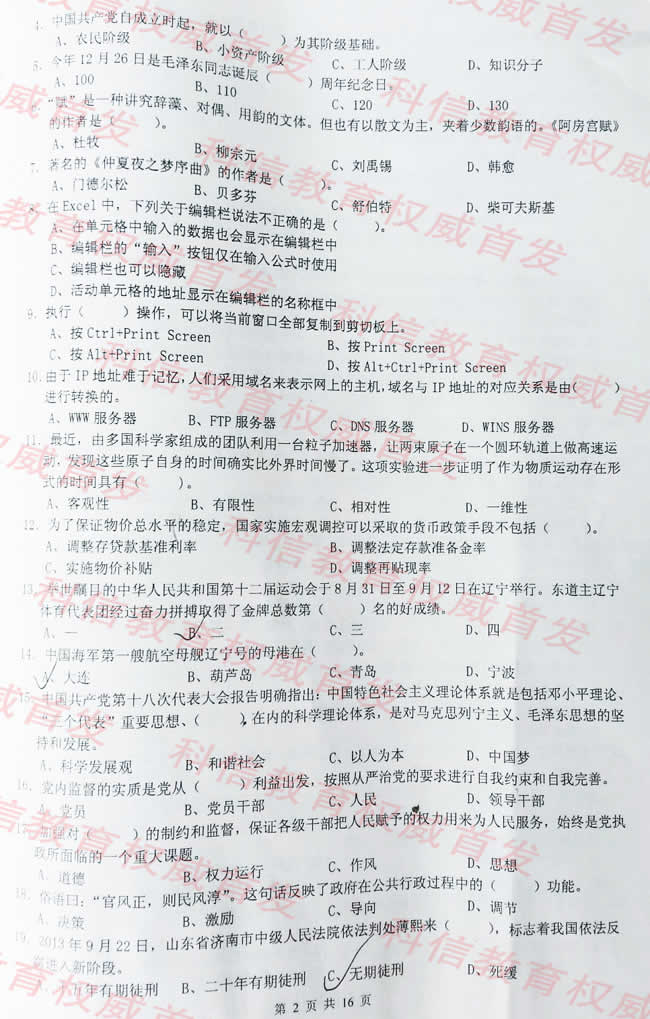 4. 中国共产党自成立时起，就以（ ）为其阶级基础。
A、农民阶级 B、小资产阶级 C、工人阶级 D、知识分子
5. 今年12月26日是毛泽东同志诞辰（ ）周年纪念日。
A、100 B、110 C、120 D、130
6. “赋”是一种讲究辞藻、对偶、用韵的文体。但也有以散文为主，夹着少数韵语的。《阿房宫赋》
的作者是（ ）。
A、杜牧 B、柳宗元 C、刘禹锡 D、韩愈
7. 著名的《仲夏夜之梦序曲》的作者是（ ）。
A、门德尔松 B、贝多芬 C、舒伯特 D、柴可夫斯基
8. 在Excel中，下列关于编辑栏说法不正确的是（ ）。
A、在单元格中输入的数据也会显示在编辑栏中
B、编辑栏的“输入”按钮仅在输入公式时使用
C、编辑栏也可以隐藏
D、活动单元格的地址显示在编辑栏的名称框中
9. 执行（ ）操作，可以将当前窗口全部复制到剪切板上。
A、按Ctrl+Print Screen B、按Print Screen
C、按Alt+Print Screen D、按Alt+Ctrl+Print Screen
10. 由于IP地址难于记忆，人们采用域名来表示网上的主机，域名与IP地址的对应关系是由（ ）
进行转换的。
A、WWW服务器 B、FTP服务器 C、DNS服务器 D、WINS服务器
11. 最近，由多国科学家组成的团队利用一台粒子加速器，让两束原子在一个圆环轨道上做高速运
动，发现这些原子自身的时间确实比外界时间慢了。这项实验进一步证明了作为物质运动存在形
式的时间具有（ ）。
A、客观性 B、有限性 C、相对性 D、一维性
12. 为了保证物价总水平的稳定，国家实施宏观调控可以采取的货币政策手段不包括（ ）。
A、调整存贷款基准利率 B、调整法定存款准备金率
C、实施物价补贴 D、调整再贴现率
13. 举世瞩目的中华人民共和国第十二届运动会于8月31日至9月12日在辽宁举行。东道主辽宁
体育代表团经过奋力拼搏取得了金牌总数第（ ）名的好成绩。
A、一 B、二 C、三 D、四
14. 中国海军第一艘航空母舰辽宁号的母港在（ ）。
A、大连 B、葫芦岛 C、青岛 D、宁波
15. 中国共产党第十八次代表大会报告明确指出：中国特色社会主义理论体系就是包括邓小平理论、
“三个代表”重要思想、（ ），在内的科学理论体系，是对马克思列宁主义、毛泽东思想的坚
持和发展。
A、科学发展观 B、和谐社会 C、以人为本 D、中国梦
16. 党内监督的实质是党从（ ）利益出发，按照从严治党的要求进行自我约束和自我完善。
A、党员 B、党员干部 C、人民 D、领导干部
17. 加强对（ ）的制约和监督，保证各级干部把人民赋予的权力用来为人民服务，始终是党执
政所面临的一个重大课题。
A、道德 B、权力运行 C、作风 D、思想
18. 俗语曰：“官风正，则民风淳”。这句话反映了政府在公共行政过程中的（ ）功能。
A、决策 B、激励 C、导向 D、调节
19. 2013年9月22日，山东省济南市中级人民法院依法判处薄熙来（ ），标志着我国依法反
腐进入新阶段。
A、十五年有期徒刑 B、二十年有期徒刑 C、无期徒刑 D、死缓
第 2 页 共 16 页
科信教育权威首发